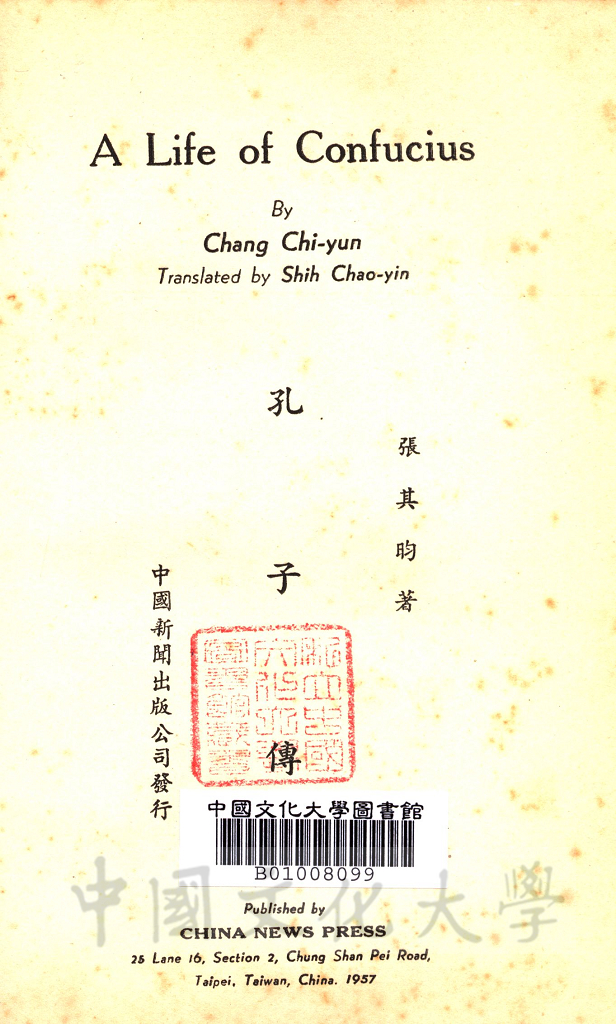 A Life of Confucius
By
Chang Chi-yun
Translated by Shih Chao-yin
孔子傳
張其昀著
中國新聞出版公司發行
中國文化大學圖書館
B01008099
Published by
CHINA NEWS PRESS
25 Lane 16, Section 2, Chung Shan Pei Road,
Taipei, Taiwan, China. 1957
中國文化大學